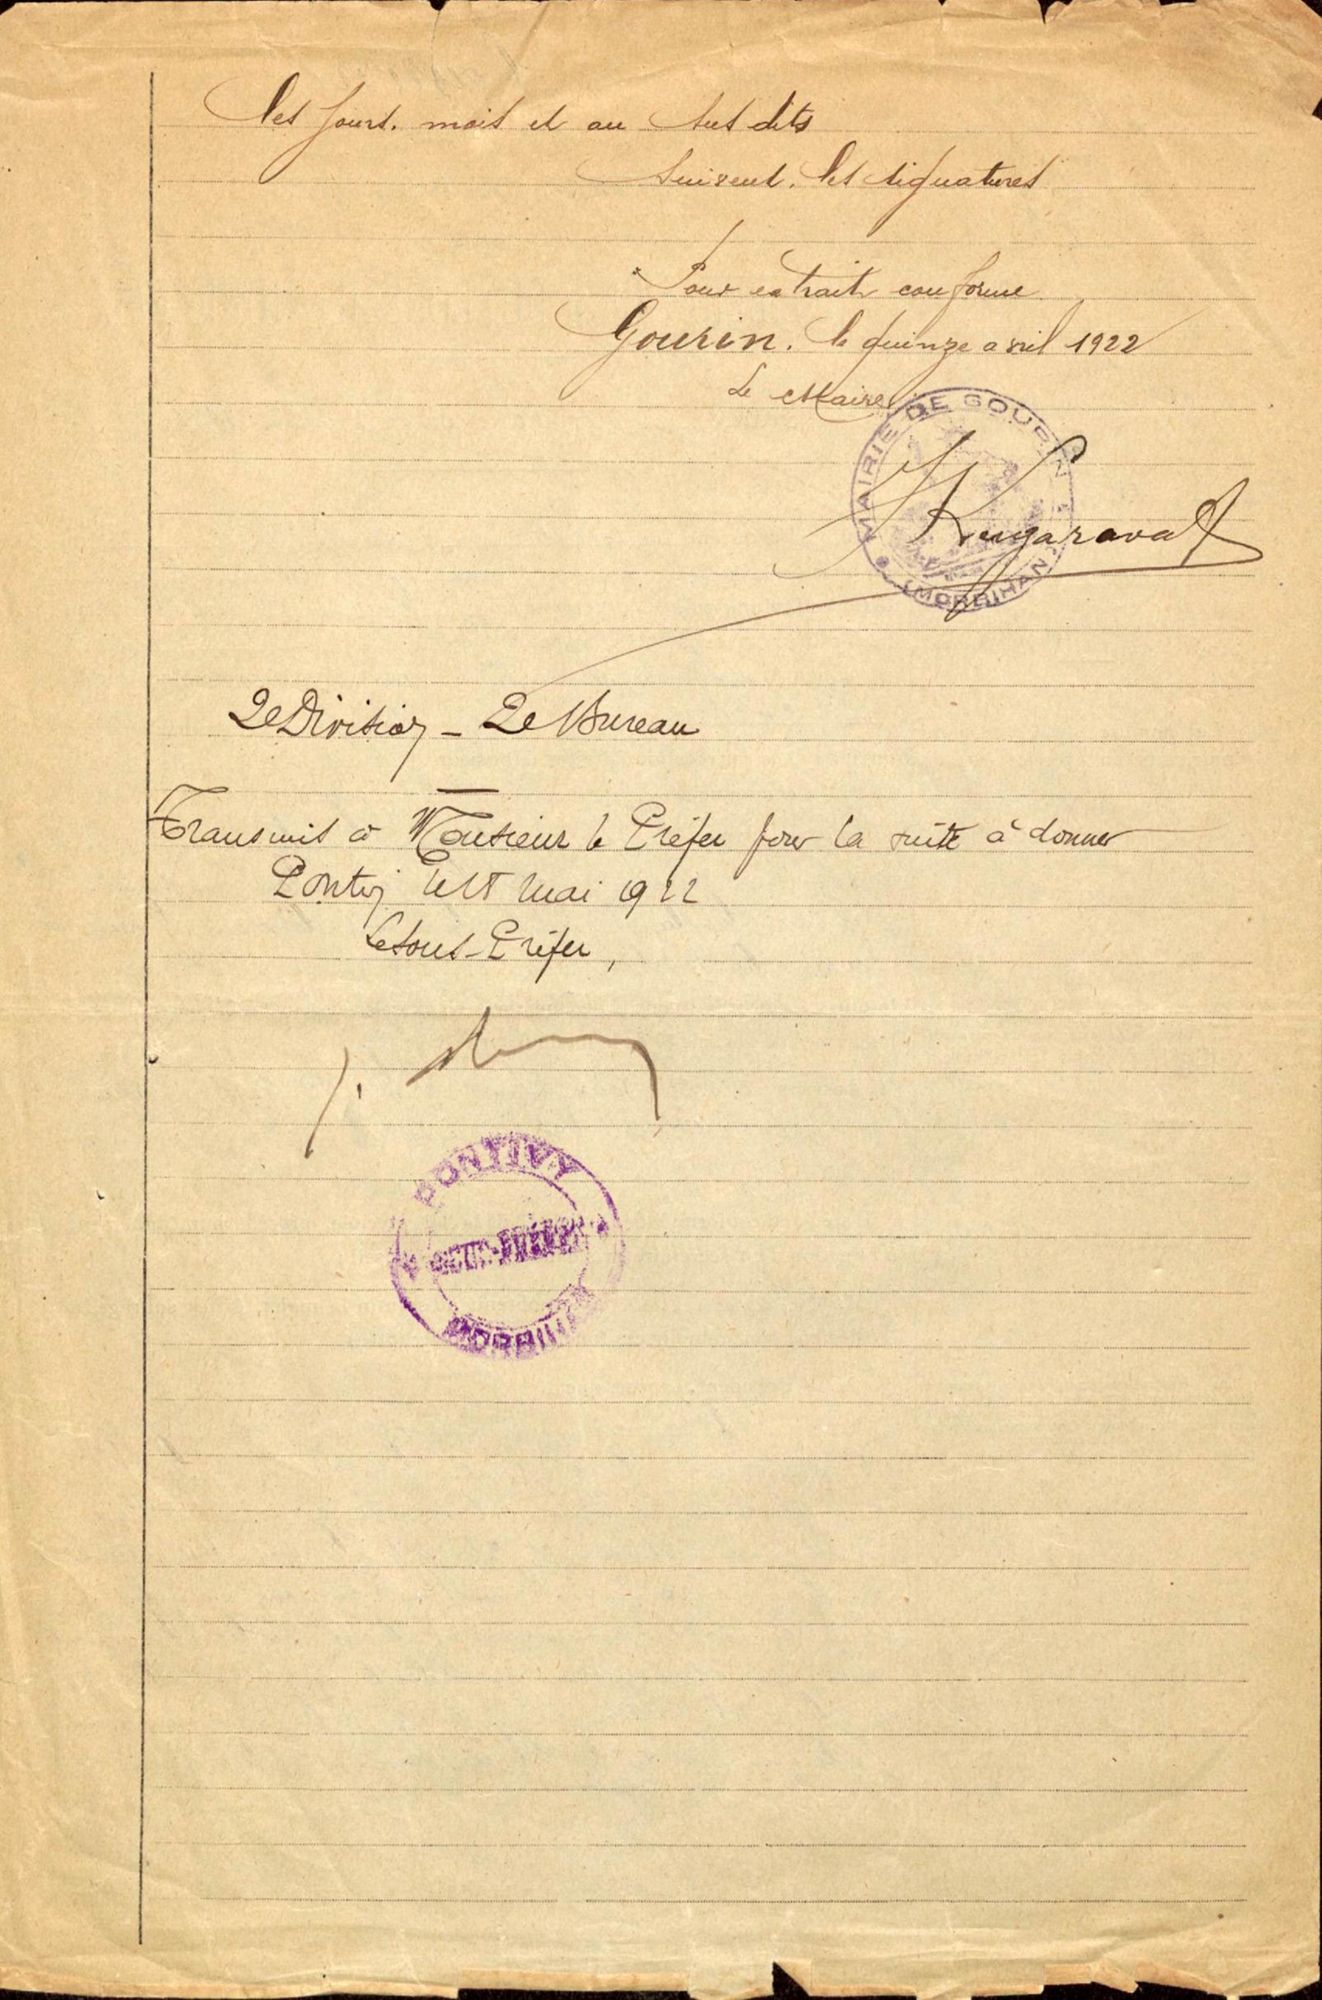 les jours, mois et an sus dits
suivent les signatures
Pour extrait conforme
Gourin, le quinze avril 1922
Le Maire
MAIRIE DE GOURIN
(MORBIHAN)
2e Division - 2e Bureau
Transmis à Monsieur le Préfet pour la suite à donner
Pontivy le mai 1922
Le Sous-Préfet,
PONTIVY
SOUS-PRÉFET
MORBIHAN